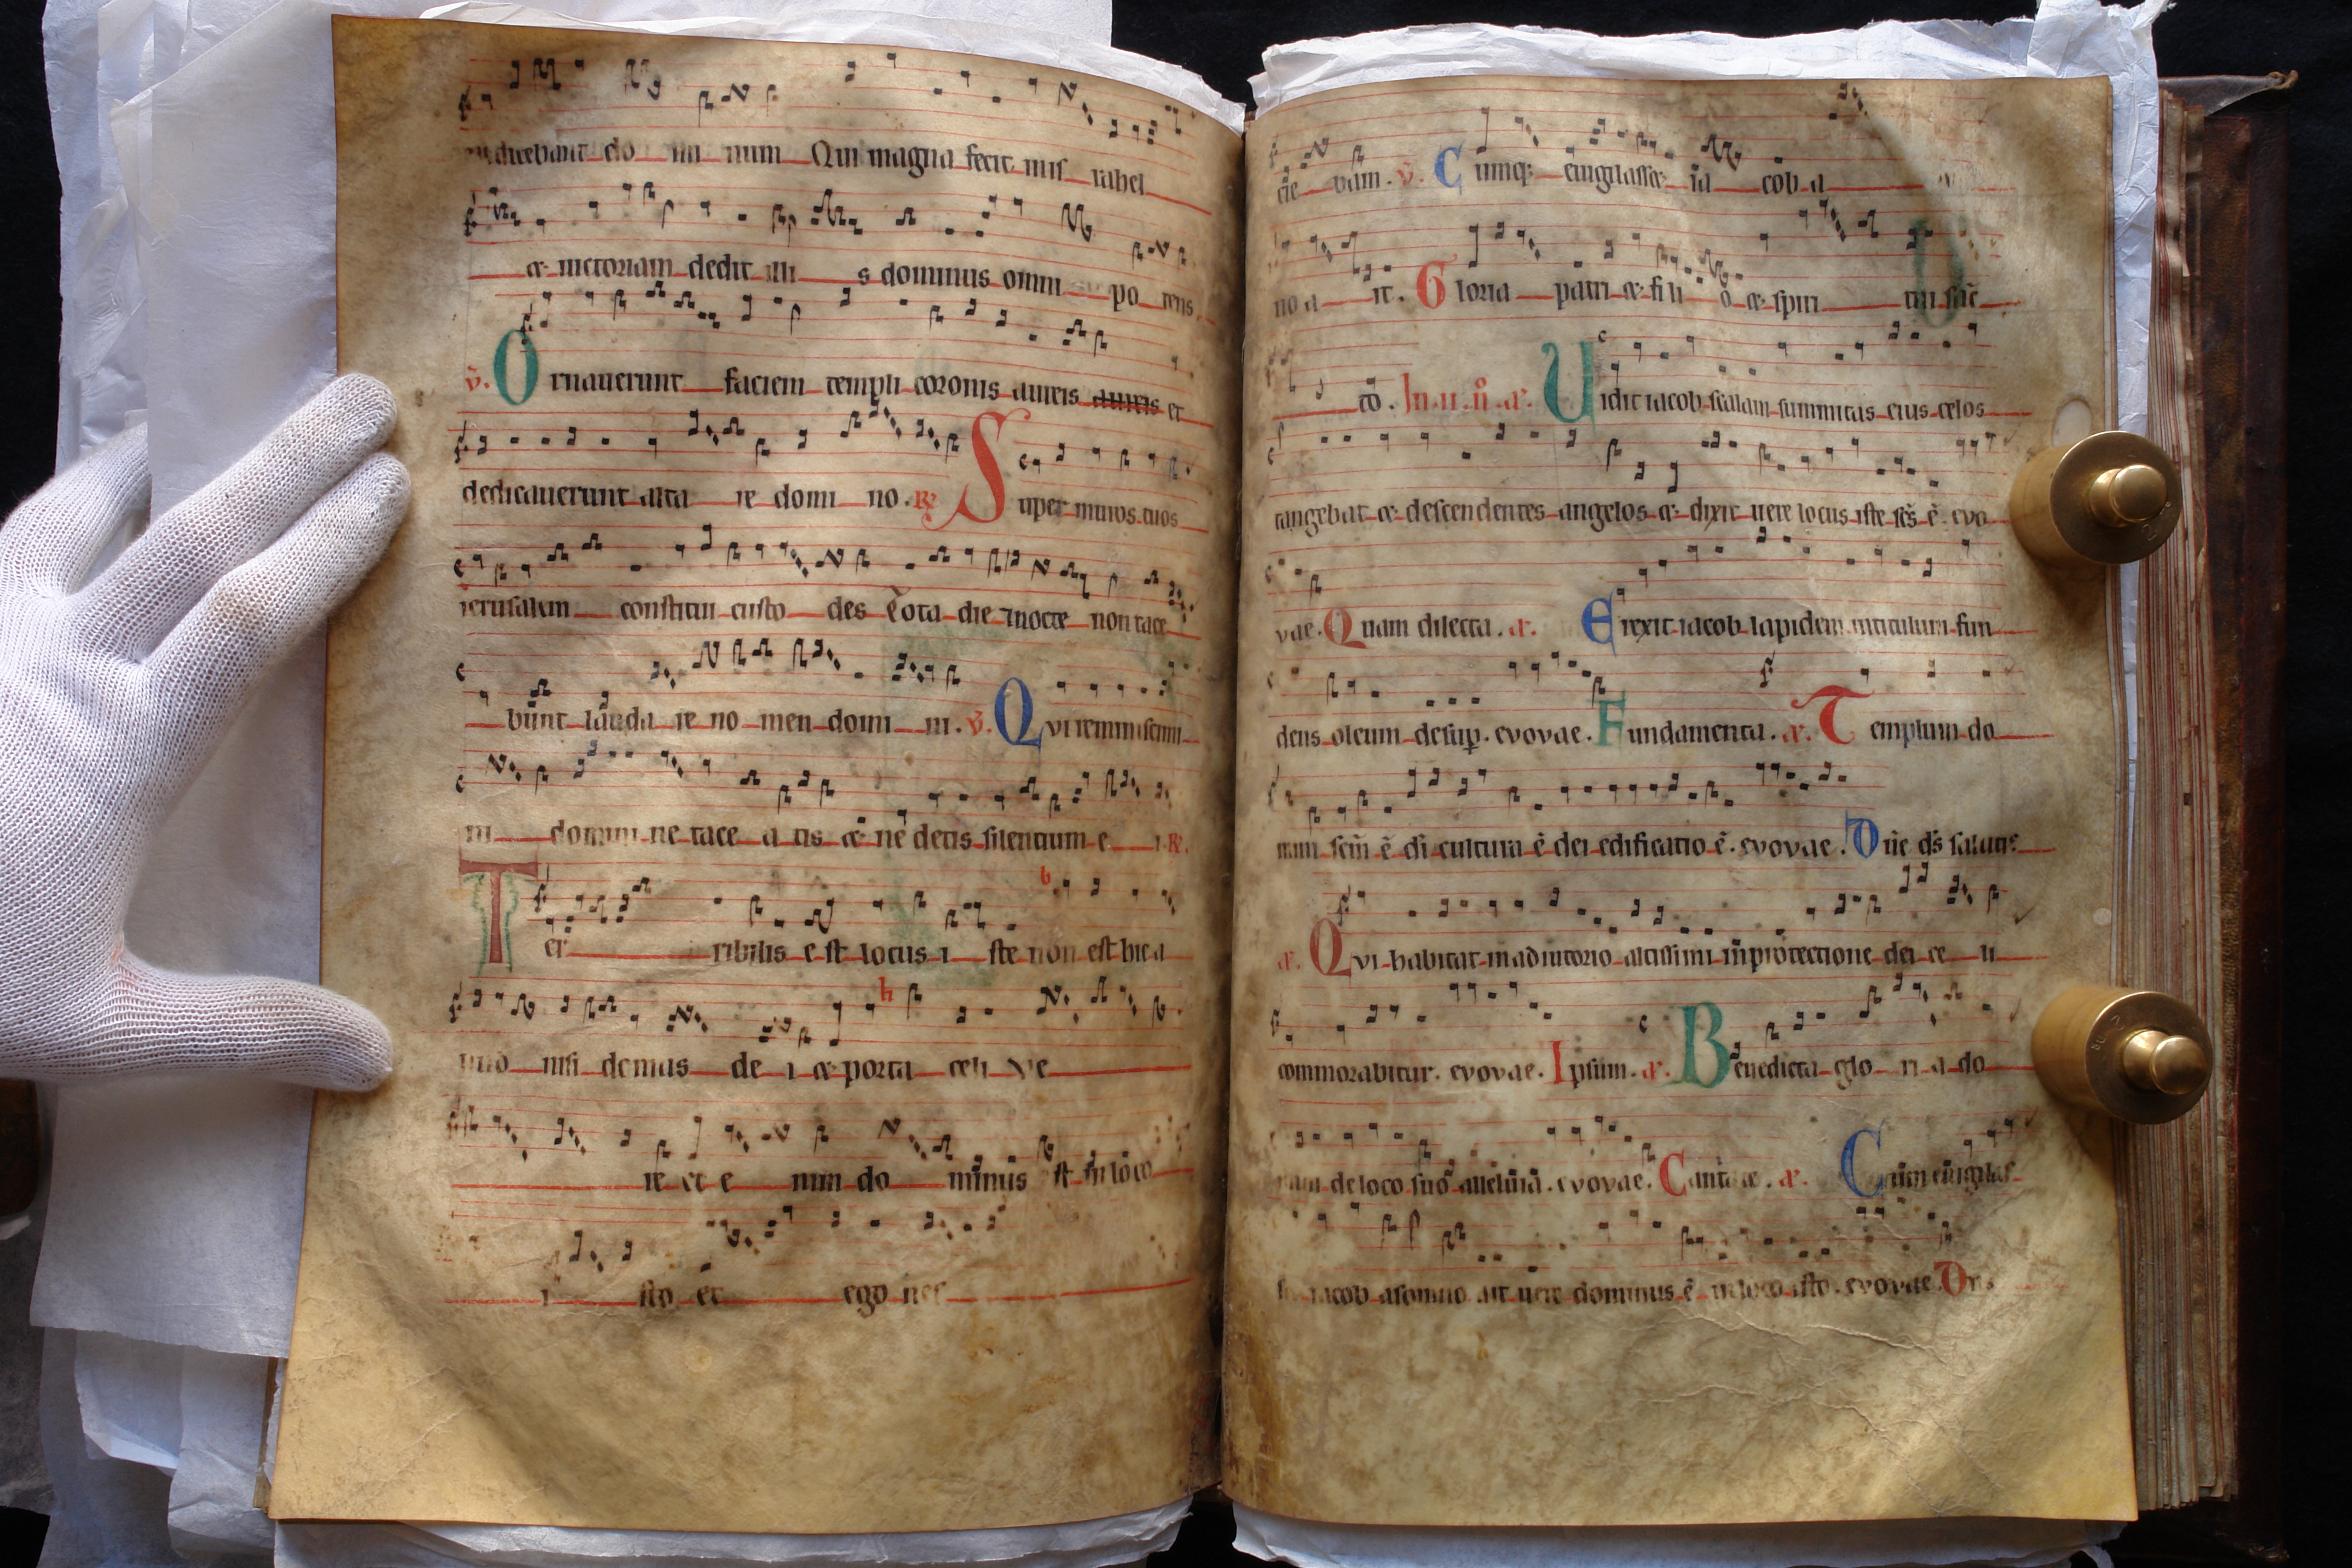 dicebant do mi num Qui magna fecit in israhel
et uictoriam dedit illi s dominus omni po tens
v. Ornauerunt faciem templi coronis aureis aureis et
dedicauerunt alta re domi no. R Super muros tuos
ierusalem constitui custo des Tota die 7 nocte non tace
bunt lauda re no men domi ni. v. Qui reminiscimi
ni domini ne tace a tis et ne detis silentium e i. R.
Ter ribilis e st locus i ste non est hic a
liud nisi domus de i et porta celi Ve
re et e nim do minus est in loco
i sto et ego nes
cie bam. v. Cumq; euigilasset ia cob a
no a it. Gloria patri et fi li o et spiri tui sāc
to. In .ii. n̄. a. Uidit iacob scalam summitas eius celos
tangebat et descendentes angelos et dixit uere locus iste scs ē. evo
vae. Quam dilecta. a. Erexit iacob lapidem in titulum fun
dens oleum desup. evovae. Fundamenta. a. Templum do
mini scm ē di cultura ē dei edificatio ē. evovae. Dn̄e ds salutis
a. Qui habitat in adiutorio altissimi in protectione dei ce li
commorabitur. evovae. Ipsum. a. Benedicta glo ri a do
mini de loco suo alleluia. evovae. Cantate. a. Cum euigilas
set iacob a somno ait uere dominus ē in loco isto. evovae.